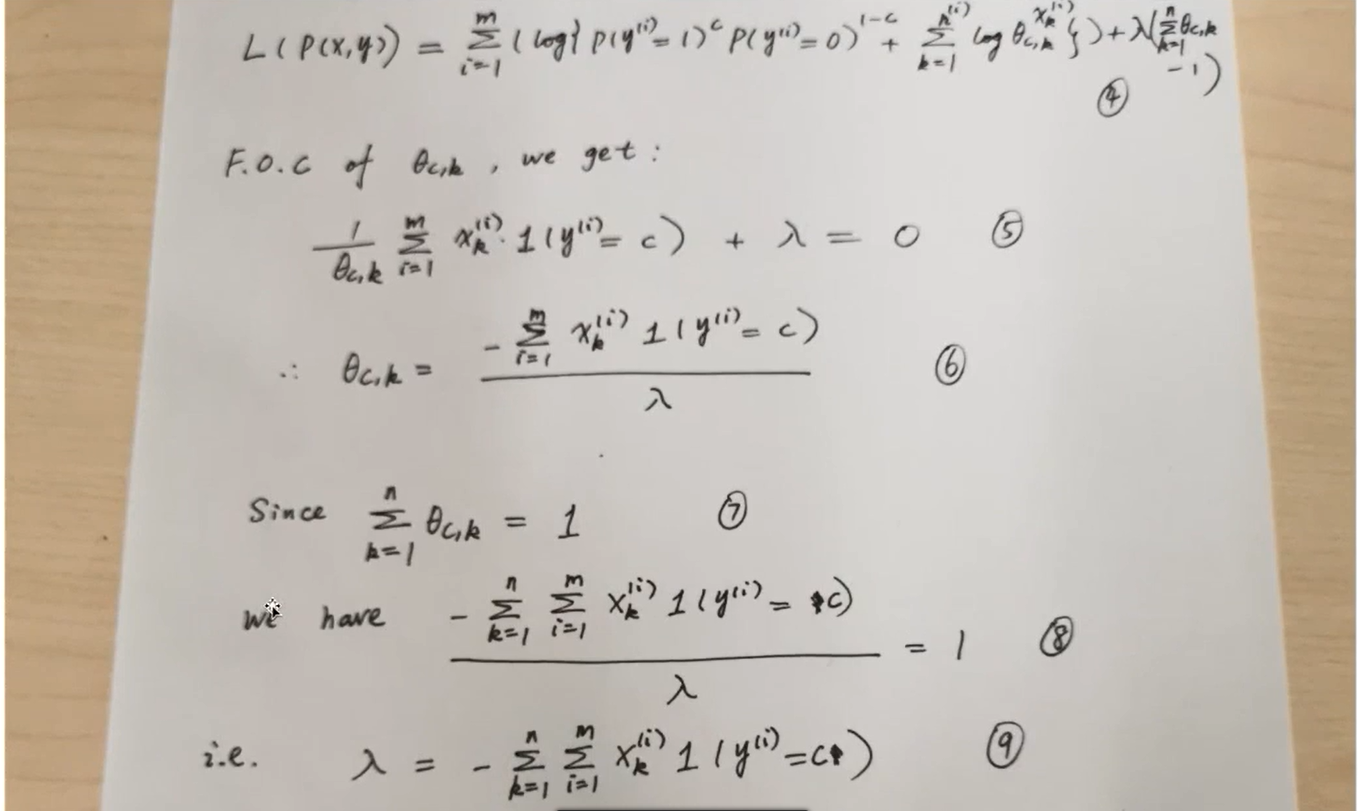 L(P(x,y)) = Σ_{i=1}^{m} ( log{ P(y^{(i)}=1)^c P(y^{(i)}=0)^{1-c} + Σ_{k=1}^{n^{(i)}} log θ_{c,k}^{x_k^{(i)}} } ) + λ( Σ_{k=1}^{n} θ_{c,k} - 1 )
④
F.O.C of θ_{c,k} , we get :
1/θ_{c,k} Σ_{i=1}^{m} x_k^{(i)} · 1(y^{(i)} = c) + λ = 0 ⑤
∴ θ_{c,k} = (- Σ_{i=1}^{m} x_k^{(i)} 1(y^{(i)} = c)) / λ ⑥
Since Σ_{k=1}^{n} θ_{c,k} = 1 ⑦
we have (- Σ_{k=1}^{n} Σ_{i=1}^{m} x_k^{(i)} 1(y^{(i)} = c)) / λ = 1 ⑧
i.e. λ = - Σ_{k=1}^{n} Σ_{i=1}^{m} x_k^{(i)} 1(y^{(i)} = c) ⑨